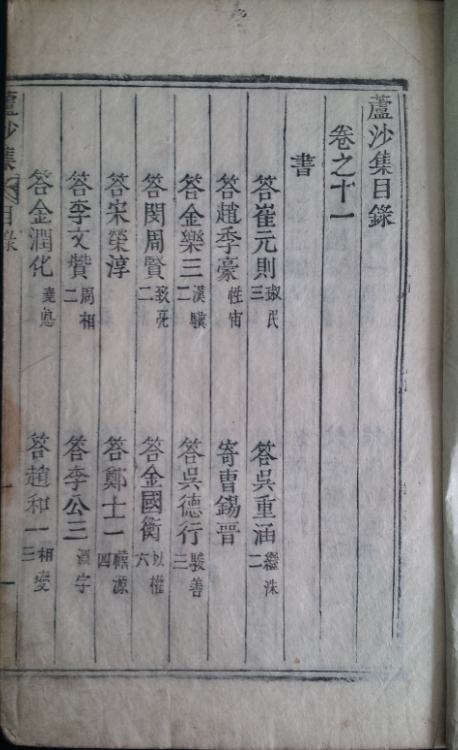 蘆沙集目錄
卷之十一
書
答崔元則 琡民 三 答吳重涵 繼洙 二
答趙季豪 性宙 寄曹錫晋
答金樂三 漢驥 二 答吳德行 駿善 三
答閔周賢 致亮 二 答金國衡 以權 六
答宋榮淳 答鄭士一 源 四
答李文贊 周相 二 答李公三 宇
答金潤化 答趙和一 相燮 三
蘆沙集 目錄 一